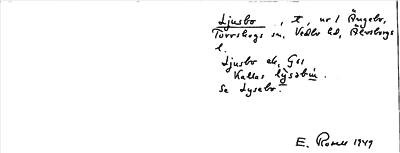 Ljusbo, t, nr 1 Ängebo,
Torrskogs sn, Vedbo hd, Älvsborgs
l.
Ljusbo ek, G11
Kallas
Se Lysebo.
E. Rosell 1949